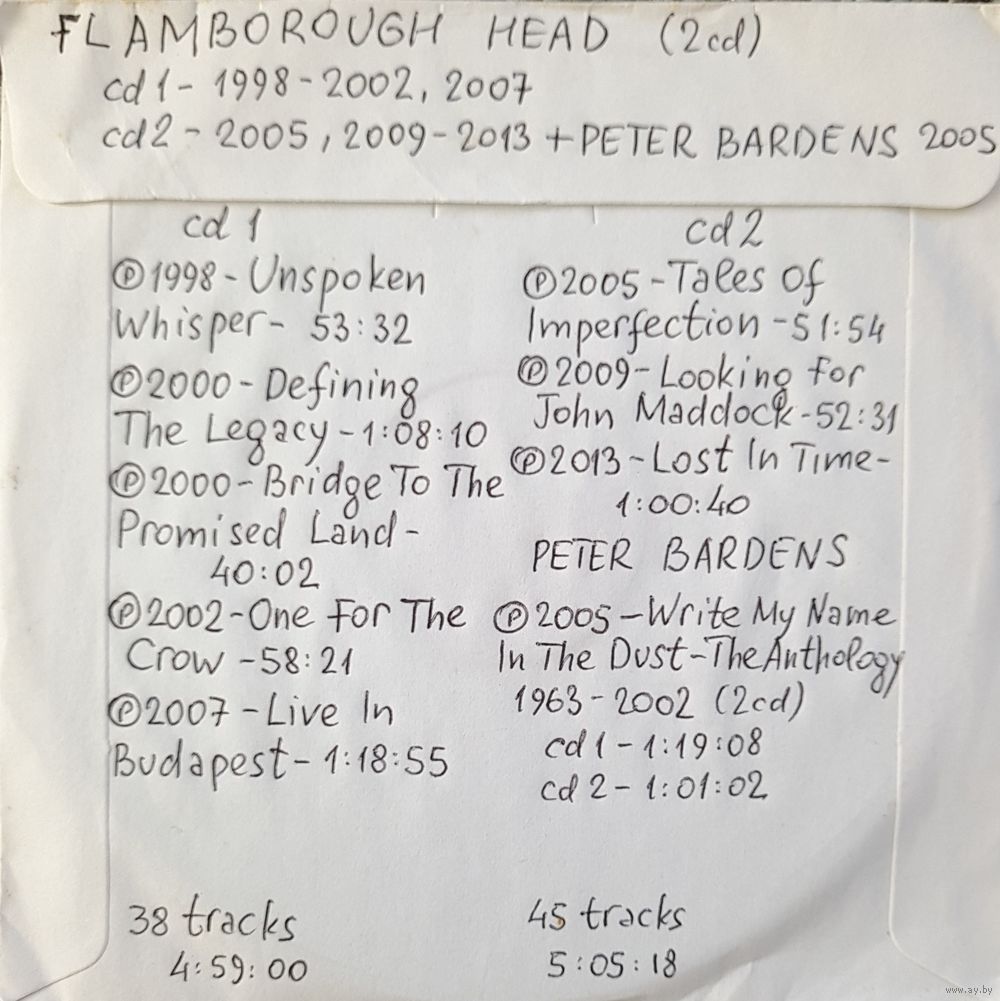 FLAMBOROUGH HEAD (2cd)
cd1- 1998-2002, 2007
cd2 - 2005, 2009-2013 + PETER BARDENS 2005
cd 1
Ⓟ1998-Unspoken
Whisper- 53:32
Ⓟ2000-Defining
The Legacy-1:08:10
Ⓟ2000-Bridge To The
Promised Land-
40:02
Ⓟ2002-One For The
Crow -58:21
Ⓟ2007 -Live In
Budapest- 1:18:55
38 tracks
4:59:00
cd2
Ⓟ2005-Tales Of
Imperfection -51:54
Ⓟ2009-Looking For
John Maddock-52:31
Ⓟ2013-Lost In Time-
1:00:40
PETER BARDENS
Ⓟ2005-Write My Name
In The Dust-The Anthology
1963-2002 (2cd)
cd1-1:19:08
cd 2- 1:01:02
45 tracks
5:05:18
www.ay.by